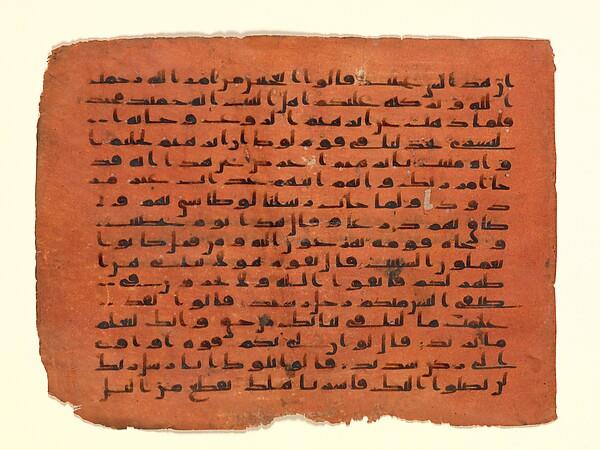 ان هذا لشى عجيب قالوا اتعجبين من امر الله رحمت
الله وبركته عليكم اهل البيت انه حميد مجيد
فلما ذهب عن ابرهيم الروع وجاته ا
لبشرى يجدلنا فى قوم لوط ان ابرهيم لحليم ا
وه منيب يابرهيم اعرض عن هذا انه قد
جا امر ربك وانهم اتيهم عذاب غير مر
دود ولما جات رسلنا لوطا سى بهم و
ضاق بهم ذرعا وقال هذا يوم عصيب
وجاه قومه يهرعون اليه ومن قبل كانوا
يعملون السيت قال يقوم هولا بناتى هن ا
طهر لكم فاتقوا الله ولا تخزون فى
ضيفى اليس منكم رجل رشيد قالوا لقد
علمت ما لنا فى بناتك من حق وانك لتعلم
ما نريد قال لو ان لى بكم قوه او اوى
الى ركن شديد قالوا يلوط انا رسل ربك
لن يصلوا اليك فاسر باهلك بقطع من اليل